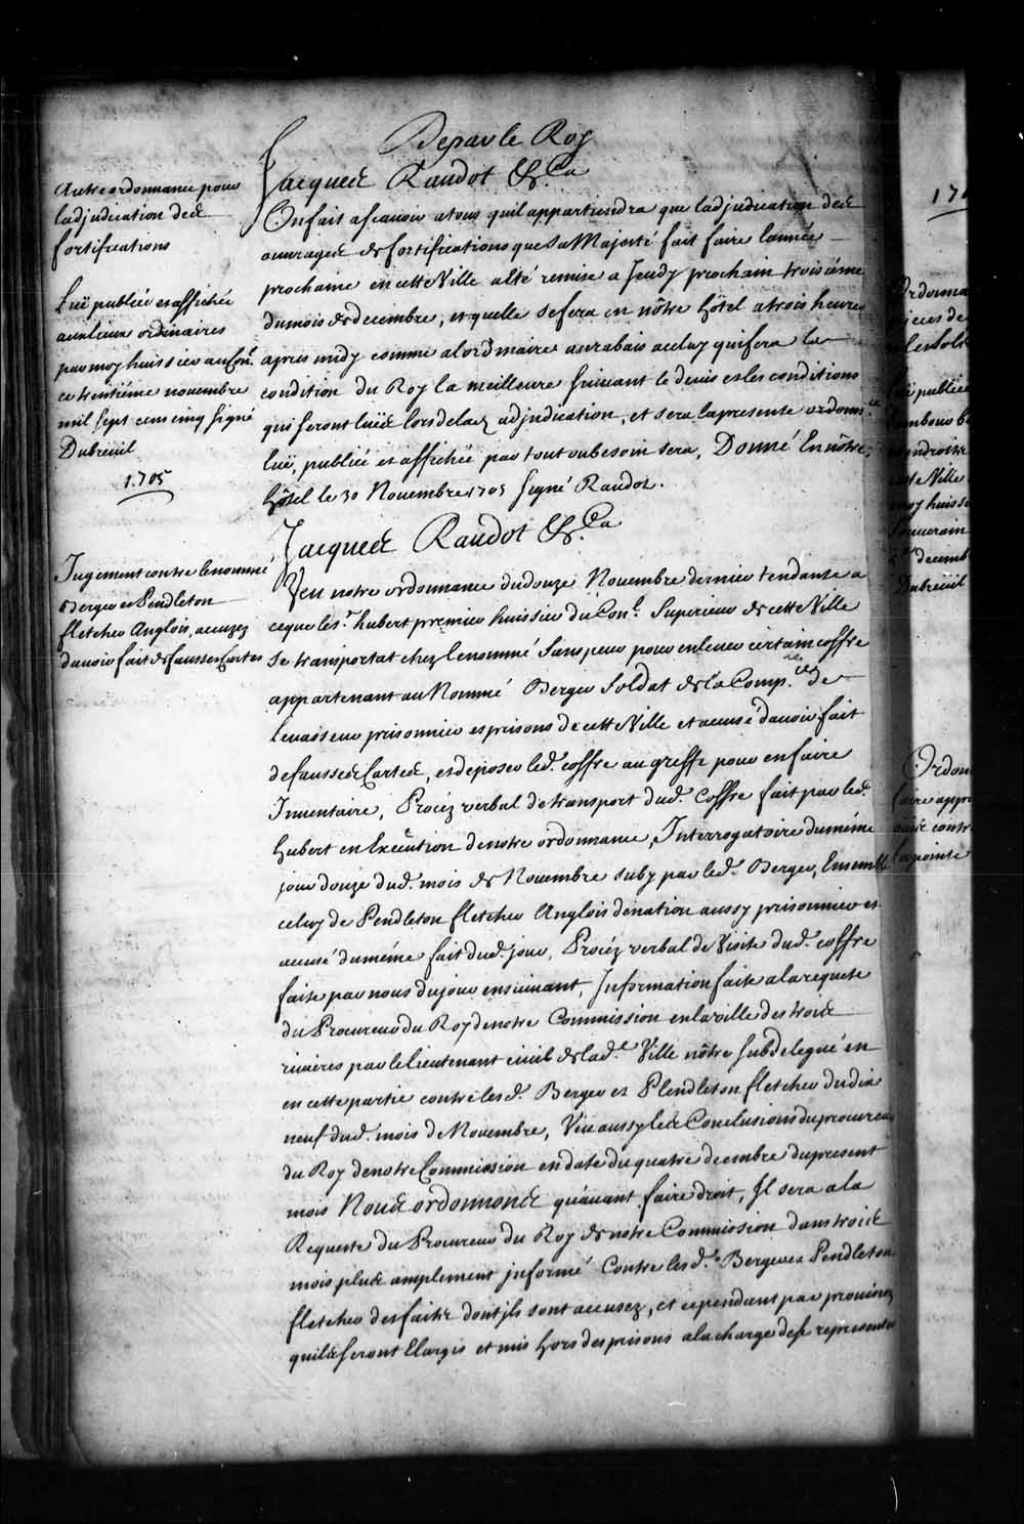 Depar le Roy
Jacques Raudot &c.a
Autre ordonnance pour
ladjudication des
fortifications
Luë publiée et affichée
aux lieux ordinaires
par moy huissier au Con.l
ce trentiéme novembre
mil sept cens cinq signé
Dubreüil
1705
On fait ascavoir atous quil appartiendra que ladjudication des
ouvrages de fortifications que Sa Majesté fait faire lannée
prochaine en cette Ville a été remise a Jeudy prochain troisiéme
dumois de decembre, et quelle se fera en nôtre hôtel atrois heures
apres midy comme alordinaire aurabais aceluy quifera la
condition du Roy la meilleure suivant le devis et les conditions
qui seront luës lors delad adjudication, et sera lapresente ordonn.ce
luë, publiée et affichée par tout oubesoin sera, Donné En nôtre
hôtel le 30 Novembre 1705 signé Raudot.
Jacques Raudot &c.a
Jugement contre lenommé
Berger et Pendleton
fletcher Anglois accusez
davoir fait de fausses Cartes
Veu notre ordonnance dudouze Novembre dernier tendante a
ceque les.r hubert premier huissier du Con.l Superieur de cette Ville
se transportat chez lenommé Sanspeur pour enlever certain coffre
appartenant au Nommé Berger Soldat de la Comp.ie de
levasseur prisonnier es prisons de cette Ville et accusé davoir fait
defausses Cartes, et deposer led. coffre au greffe pour en faire
Inventaire, Procéz verbal de transport dud. Coffre fait par led.
hubert en Execution denotre ordonnance, Interrogatoire du méme
jour douze dud. mois de Novembre suby par led. Berger, Ensemble
celuy de Pendleton fletcher Anglois denation aussy prisonnier et
accusé dumême fait dud. jour, Procéz verbal de Visite dud. coffre
faite par nous dujour ensuivant, Information faite ala requete
du Procureur du Roy denotre Commission en la ville des trois
rivieres par le Lieutenant civil de lad.e Ville nôtre subdelegué en
en cette partie contre lesd. Berger et Plendleton fletcher du dix
neuf dud. mois de Novembre, Veu aussy les Conclusions du procureur
du Roy denotre Commission en date du quatre decembre du present
mois Nous ordonnons qu'avant faire droit, Il sera ala
Requeste du Procureur du Roy de notre Commission dans trois
mois plus amplement informé Contre lesd. Berger et Pendleton
fletcher des faits dont ils sont accusez, et cependant par provision
quils seront Elargis et mis hors des prisons ala charge dese representer
170
Ordonna
ieces de
publiée
tambour b
endroits
Ville
moy huissi
souverain
decemb
Dubreüil
Ordon
faire appr
contr
lapointe